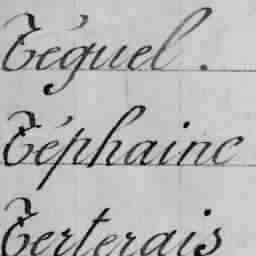 Téguel.
Téphaine
Terterais